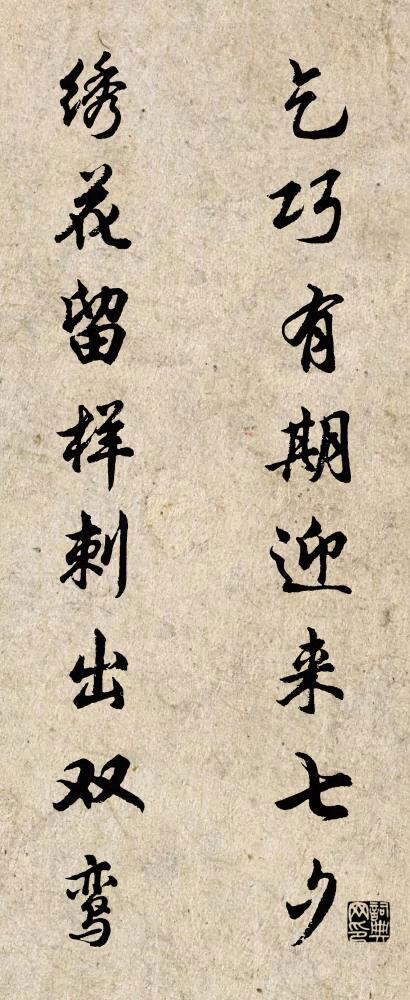 乞巧有期迎来七夕
绣花留样刺出双鸾
詞典网印